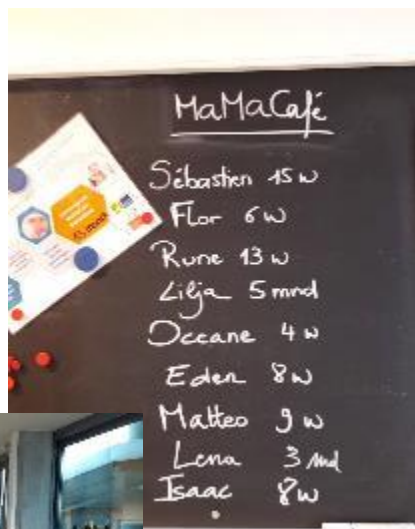 MaMaCafé
Sébastien 15 w
Flor 6 w
Rune 13 w
Lilja 5 mnd
Oceane 4 w
Eden 8 w
Matteo 9 w
Lena 3 md
Isaac 8 w